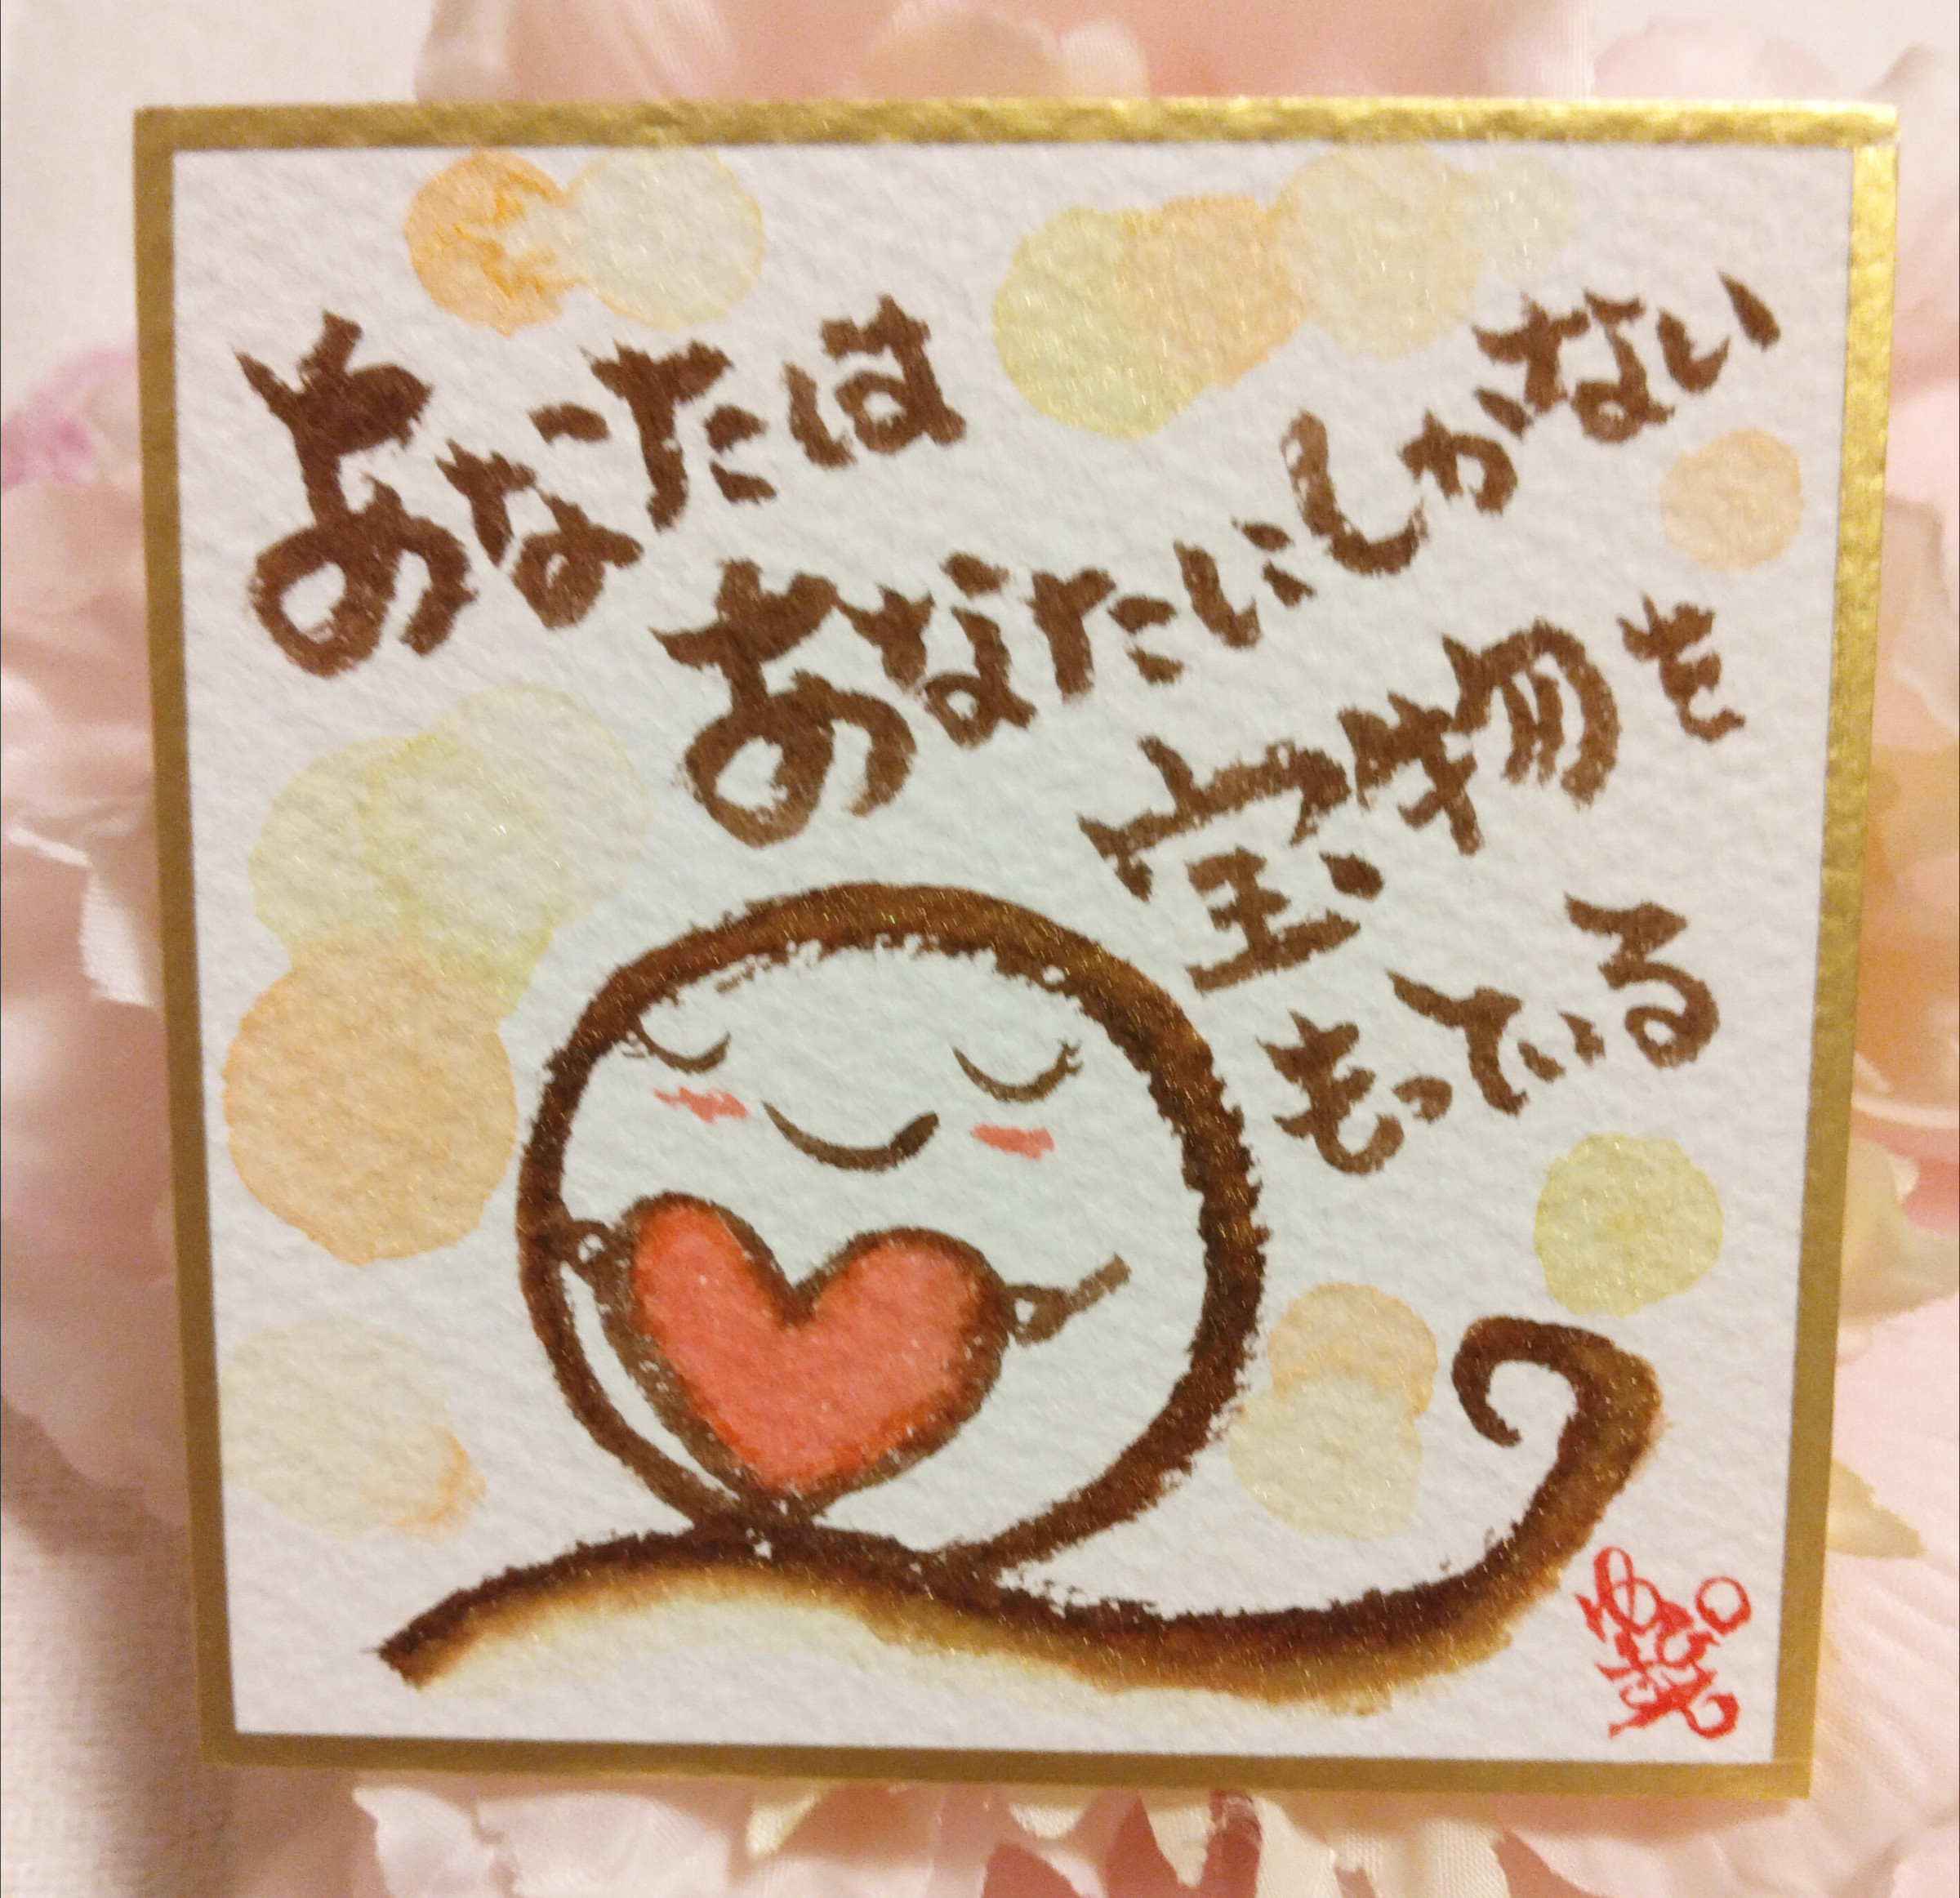 あなたは
あなたにしかない
宝物を
もっている